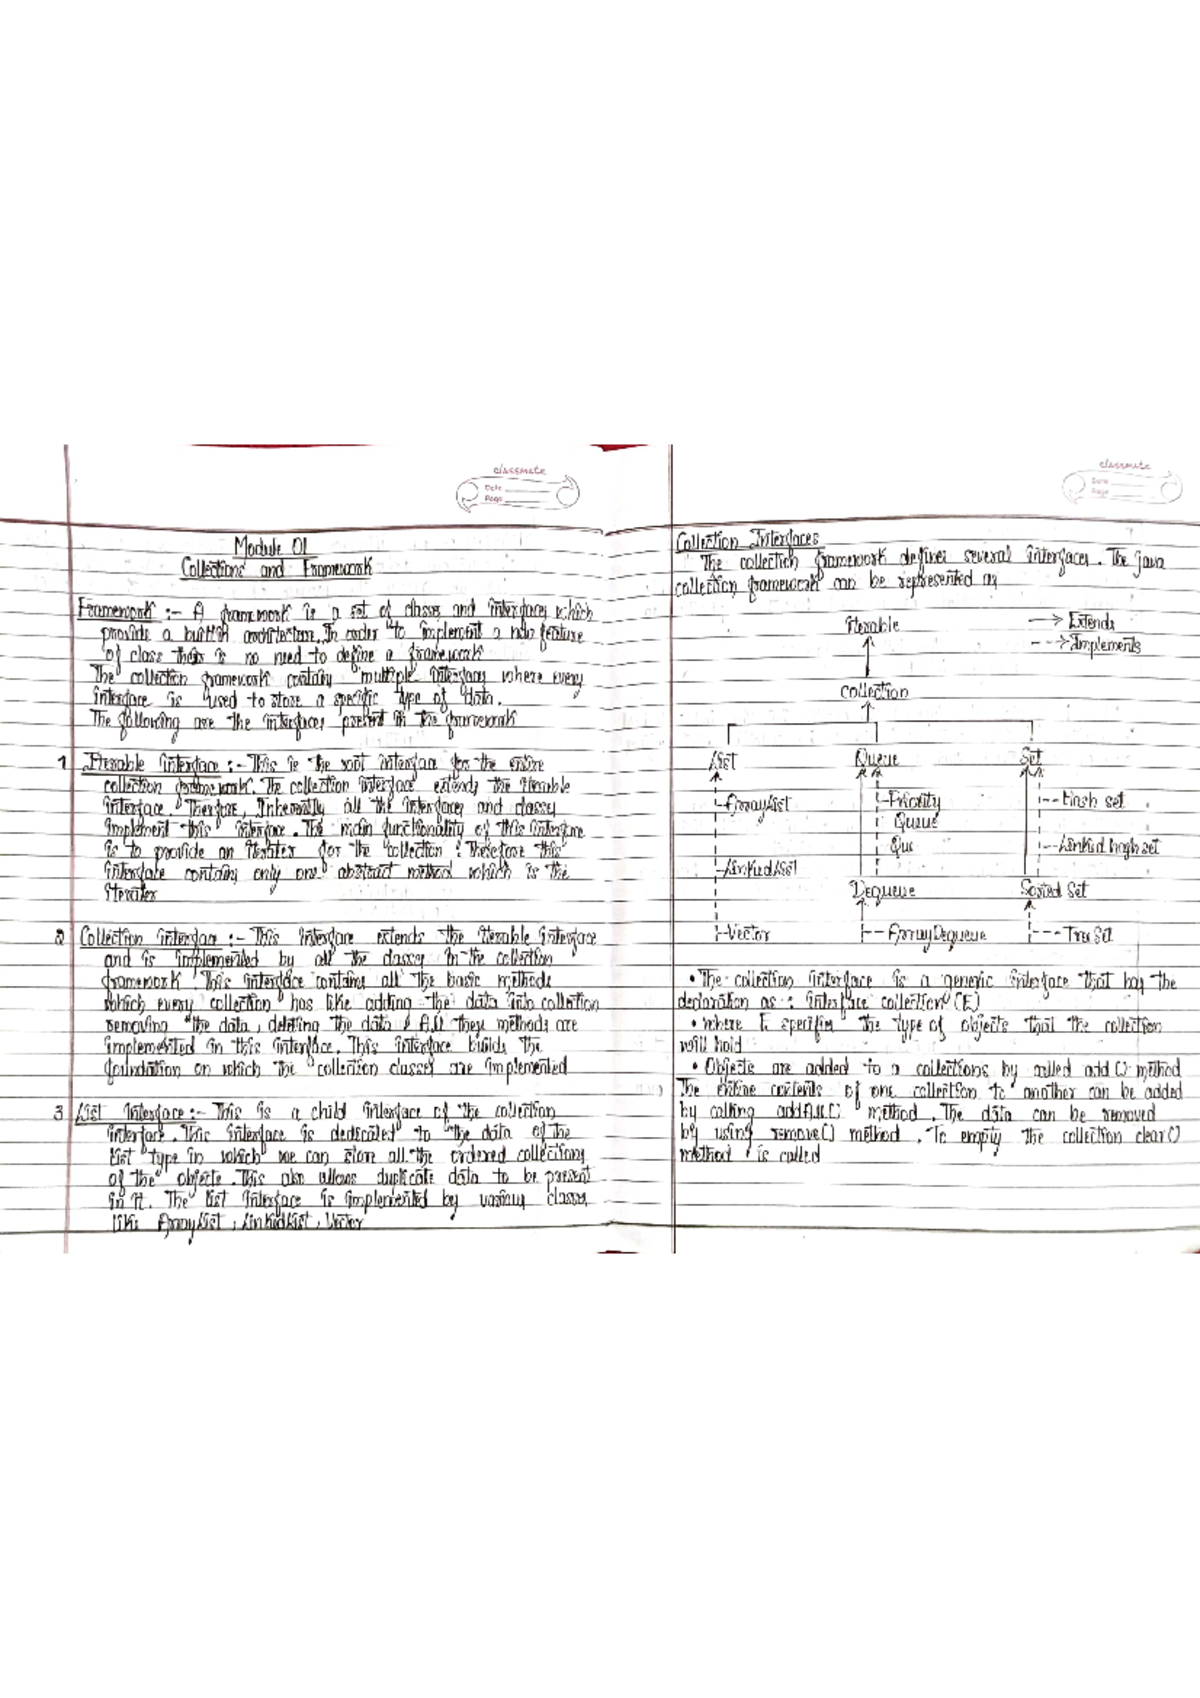 classmate
Date
Page
Module 01
Collections and Framework
Framework :- A framework is a set of classes and interfaces which
provide a builtin architecture. In order to implement a new feature
of class there is no need to define a framework
The collection framework contains multiple interfaces where every
interface is used to store a specific type of data.
The following are the interfaces present in the framework
1 Iterable interface :- This is the root interface for the entire
collection framework. The collection interface extends the iterable
interface. Therfore, Inherently all the interfaces and classes
implement this interface. The main functionality of this interface
is to provide an iterater for the collection. Therefore this
interface contains only one abstract method which is the
iterater
2 Collection interface :- This interface extends the iterable interface
and is implemented by all the classes in the collection
framework. This interface contains all the basic methods
which every collection has like adding the data into collection
removing the data, deleting the data All they methods are
implemented in this interface. This interface builds the
foundation on which the collection classes are implemented
3 List interface :- This is a child interface of the collection
interface. This interface is dedicated to the data of the
list type in which we can store all the ordered collections
of the objects. This also allows duplicate data to be present
in it. The list interface is implemented by various classes
like ArrayList, LinkedList, Vector
classmate
Date
Page
Collection Interfaces
The collection framework defines several interfaces. The java
collection framework can be represented as
Iterable
Extends
Implements
Collection
List Queue Set
ArrayList Priority Hash set
Queue
Que Linked hash set
LinkedList
Dequeue Sorted Set
Vector ArrayDequeue Tree Set
• The collection interface is a generic interface that has the
declaration as : interface collection (E)
• where E specifies the type of objects that the collection
will hold
• Objects are added to a collections by called add() method
The entire contents of one collection to another can be added
by calling addAll() method. The data can be removed
by using remove() method. To empty the collection clear()
method is called